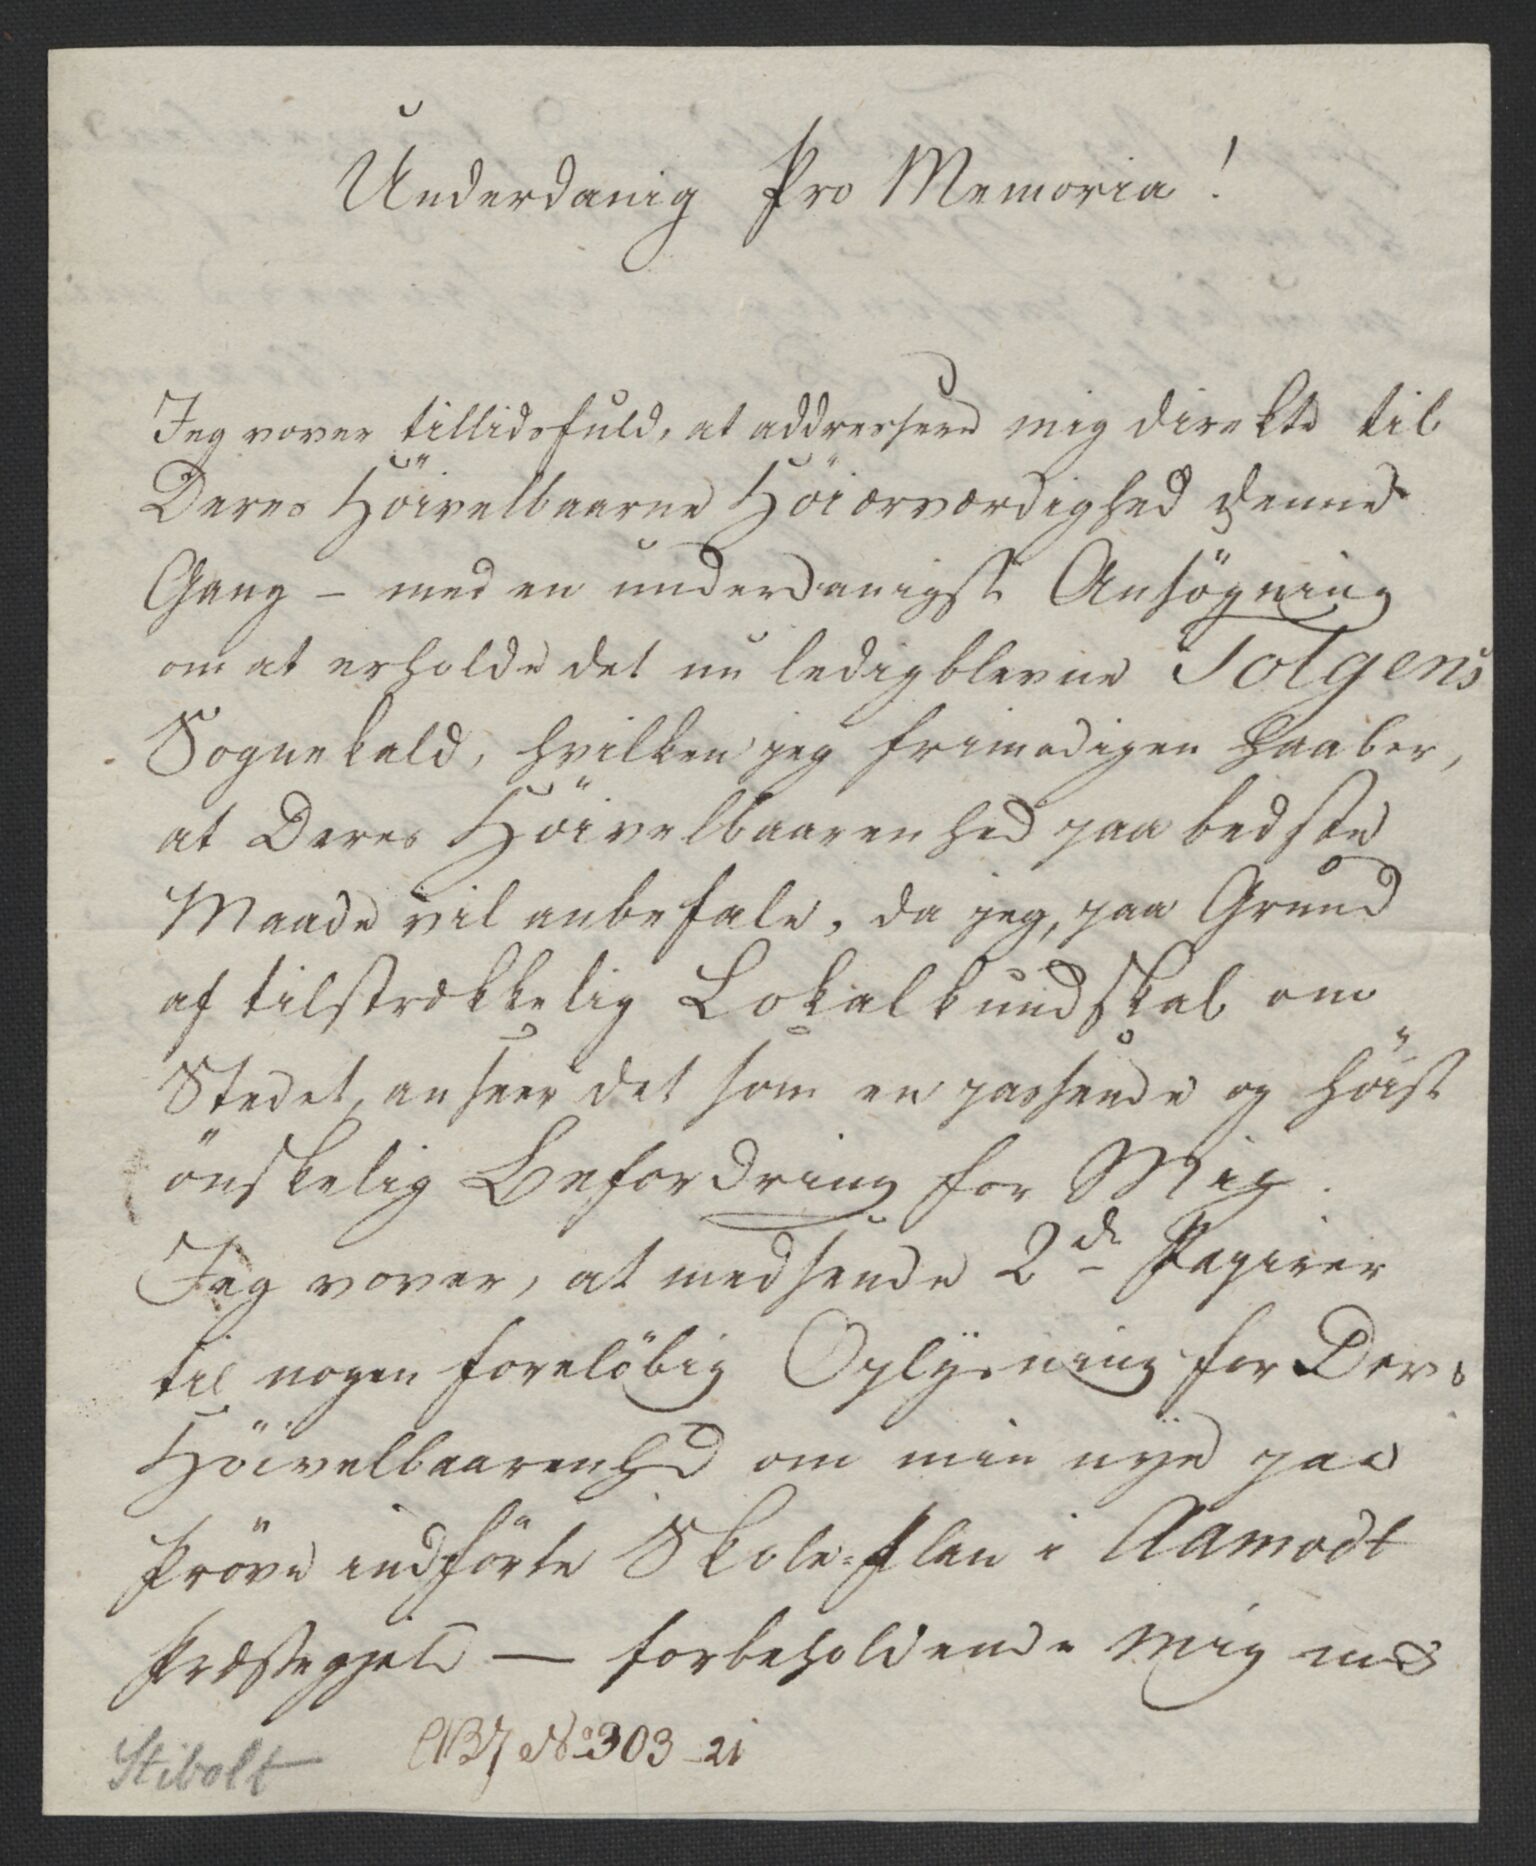 Underdanig Pro Memoria!
Jeg vover tillidsfuld, at addressere mig direkte til
Deres Höivelbaarne Höiærværdighed denne
Gang – med en underdanigst Ansögning
om at erholde det nu ledigblevne Tolgens
Sognekald, hvilken jeg frimodigen haaber,
at Deres Höivelbaarenhed paa bedste
Maade vil anbefale, da jeg, paa Grund
af tilstrækkelig Lokalkundskab om
Stedet, anseer det som en passende og höist
önskelig Befordring for Mig.
Jeg vover, at medsende 2de Papirer
til nogen foreløbig Oplysning for Deres
Höivelbaarenhed om min nye paa
Pröve indförte Skole-Plan i Aamodt
Præstegjeld — forbeholdende mig med
Stibolt No 303-21